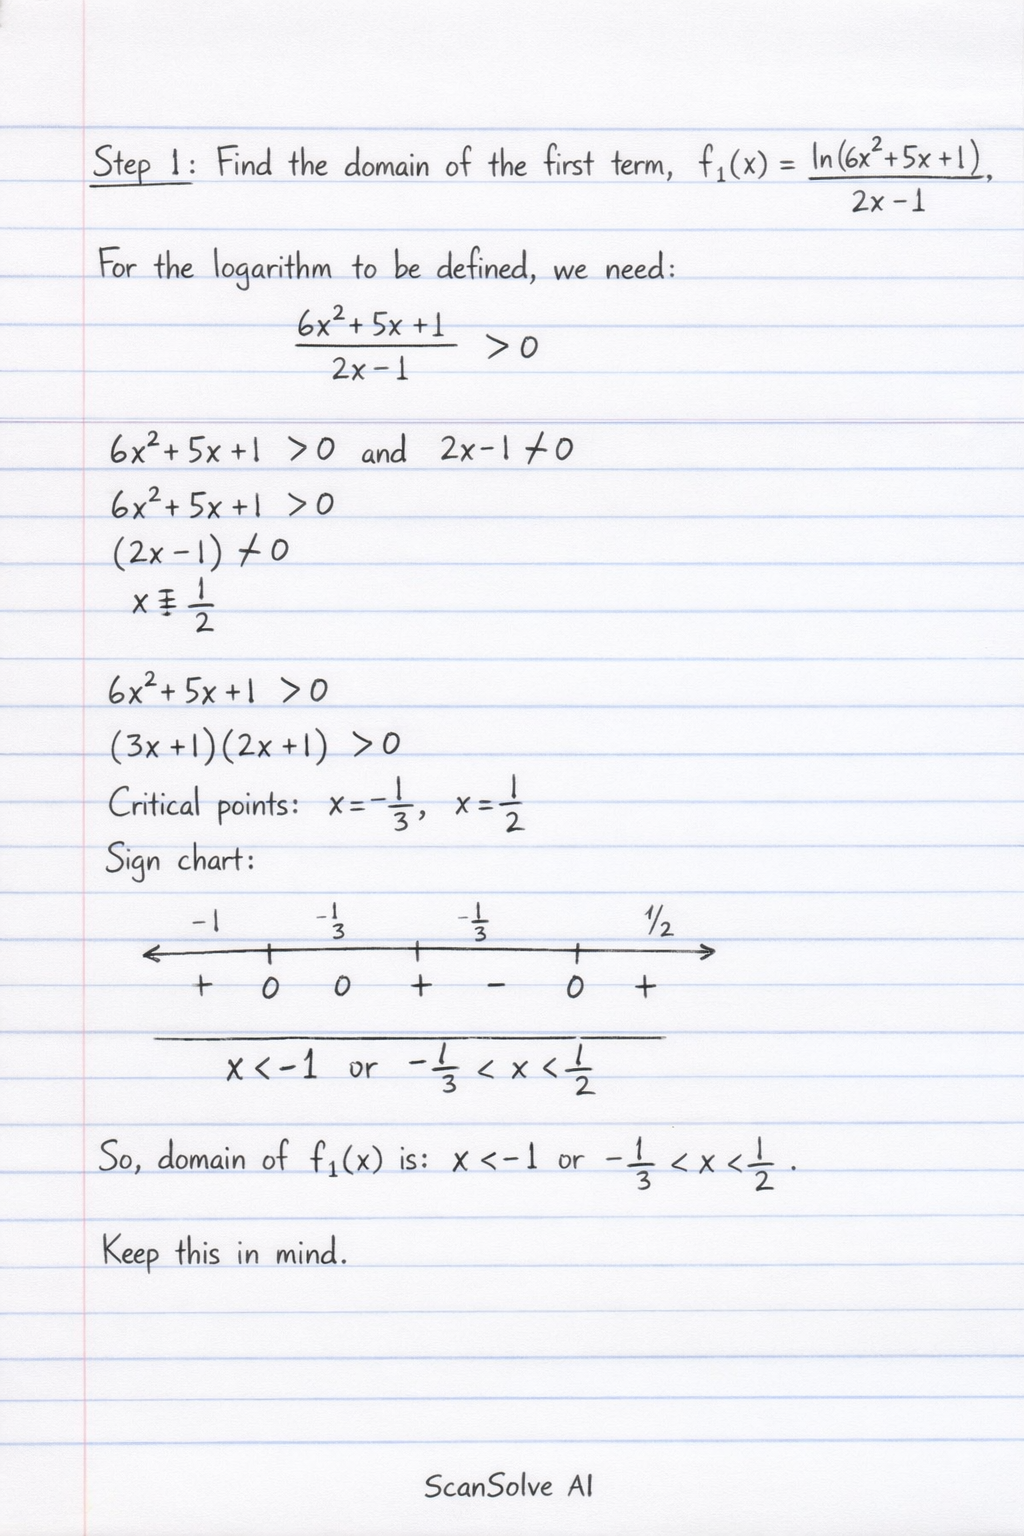 Step 1: Find the domain of the first term, f₁(x) = ln(6x²+5x+1)/(2x-1),
For the logarithm to be defined, we need:
(6x²+5x+1)/(2x-1) > 0
6x²+5x+1 > 0 and 2x-1 ≠ 0
6x²+5x+1 > 0
(2x-1) ≠ 0
x 1/2
6x²+5x+1 > 0
(3x+1)(2x+1) > 0
Critical points: x=-1/3, x=1/2
Sign chart:
-1 -1/3 -1/3 1/2
+ 0 0 + - 0 +
x<-1 or -1/3 < x < 1/2
So, domain of f₁(x) is: x<-1 or -1/3 < x < 1/2.
Keep this in mind.
ScanSolve AI